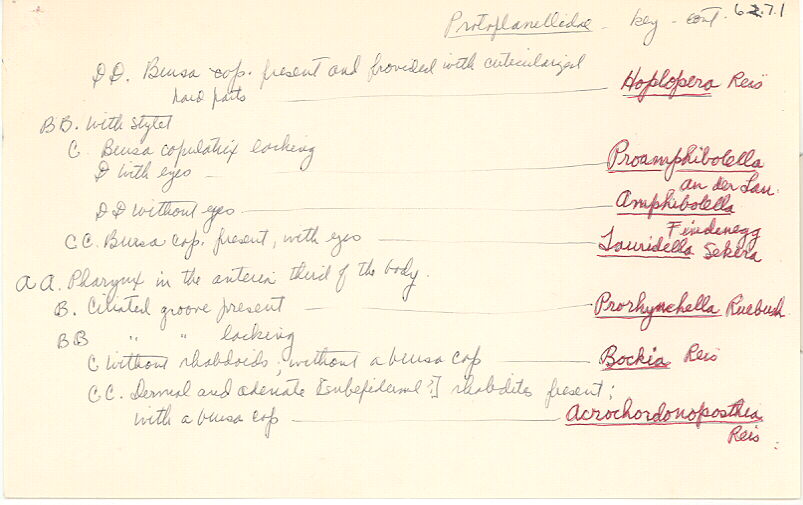 Protoplanellidae - key - cont. 6.2.7.1
DD. Bursa cop. present and provided with cuticularized
hard parts Hoplopera Reis
BB. With stylet
C. Bursa copulatrix lacking
D with eyes Proamphibolella
an der Lan
DD without eyes Amphibolella
Findenegg
CC. Bursa cop. present, with eyes Lauridella Sekera
AA. Pharynx in the anterior third of the body.
B. Ciliated groove present Prorhynchella Ruebush
BB " " lacking
C without rhabdoids; without a bursa cop Bockia Reis
CC. Dermal and adenate [subepidermal?] rhabdites present;
with a bursa cop Acrochordonoposthia
Reis